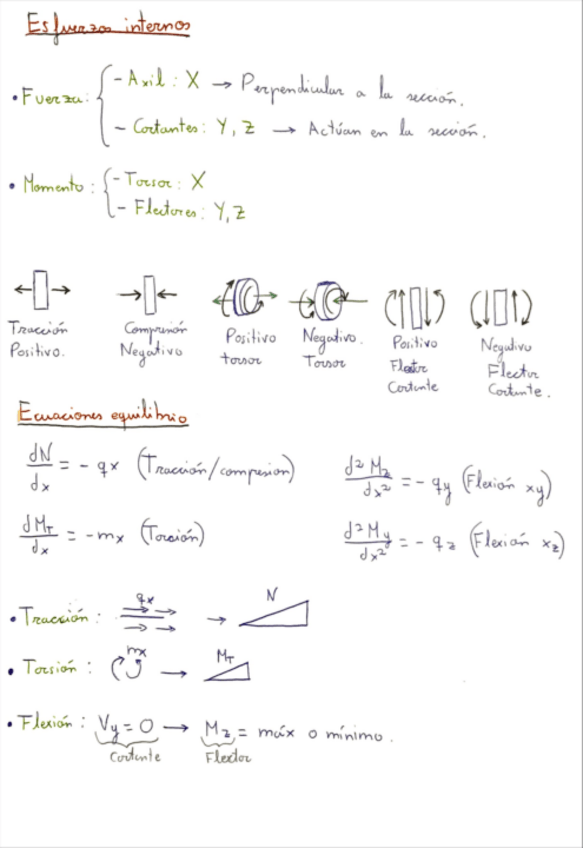 Esfuerzos internos
• Fuerza: - Axil: X → Perpendicular a la sección.
- Cortantes: Y, Z → Actúan en la sección.
• Momento: - Torsor: X
- Flectores: Y, Z
Tracción Positivo.
Compresión Negativo
Positivo torsor
Negativo. Torsor
Positivo Flector Cortante
Negativo Flector Cortante.
Ecuaciones equilibrio
dN/dx = - qx (Tracción/compresión)
d²Mz/dx² = - qy (Flexión xy)
dMT/dx = - mx (Torsión)
d²My/dx² = - qz (Flexión xz)
• Tracción: qx → N
• Torsión: mx → MT
• Flexión: Vy = 0 → Mz = máx o mínimo.
Cortante Flector